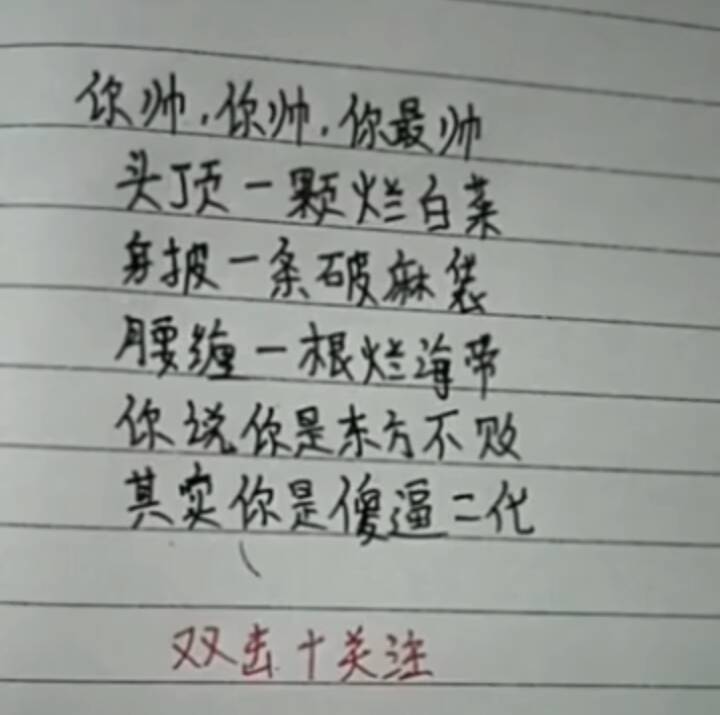 你帅,你帅,你最帅
头顶一颗烂白菜
身披一条破麻袋
腰缠一根烂海带
你说你是东方不败
其实你是傻逼二代
双击十关注